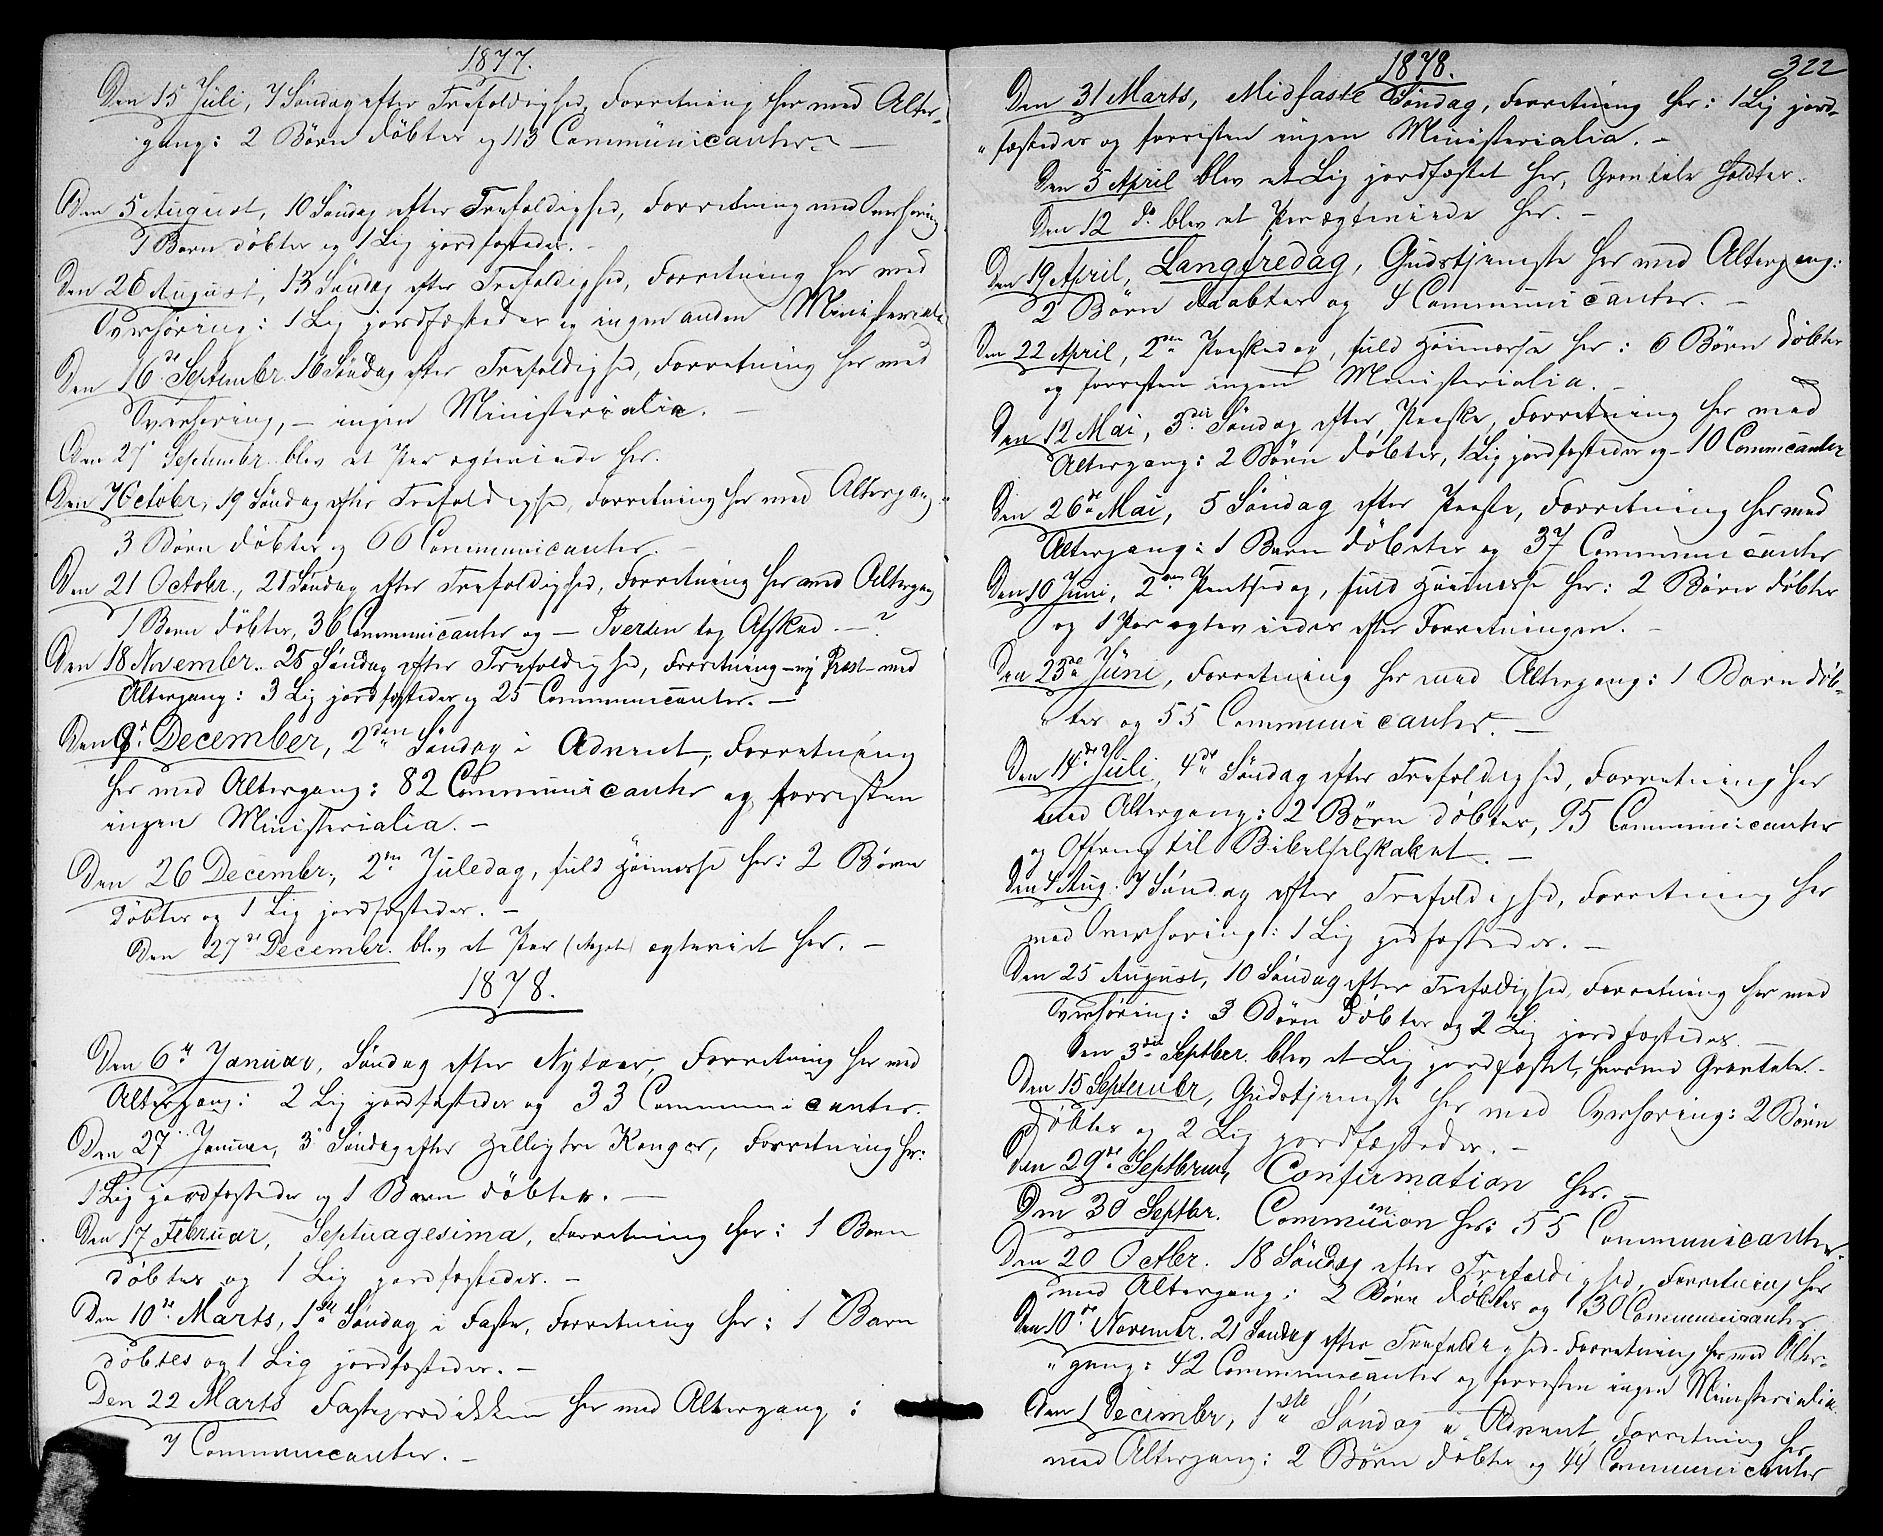 1877.
Den 15 Juli, 7 Søndag efter Trefoldighed, Forretning her med Alter-
gang: 2 Børn døbtes og 113 Communicanter. —
Den 5 August, 10 Søndag efter Trefoldighed, Forretning med Overhøring
1 Barn døbtes og 1 Lig jordfæstedes. —
Den 26 August, 13 Søndag efter Trefoldighed, Forretning her med
Overhøring: 1 Lig jordfæstedes og ingen anden Ministerialia
Den 16de September 16 Søndag efter Trefoldighed, Forretning her med
Overhøring, — ingen Ministerialia. —
Den 27 Septembr. blev et Par ægteviede her.
Den 7 Octobr, 19 Søndag efter Trefoldighed, Forretning her med Altergang:
3 Børn døbtes og 66 Communicanter. —
Den 21 Octobr., 21 Søndag efter Trefoldighed, Forretning her med Altergang
1 Barn døbtes, 36 Communicanter og — Iversen tog Afsked. —
Den 18 November. 25 Søndag efter Trefoldighed, Forretning – ny Præst – med
Altergang: 3 Lig jordfæstedes og 25 Communicanter. —
Den 9d. December, 2den Søndag i Advent, Forretning
her med Altergang: 82 Communicanter og forresten
ingen Ministerialia. —
Den 26 Decembr., 2den Juledag, fuld Høimesse her: 2 Børn
døbtes og 1 Lig jordfæstedes. —
Den 27de Decembr. blev et Par ægteviet her. —
1878.
Den 6te Januar, Søndag efter Nytaar, Forretning her med
Altergang: 2 Lig jordfæstedes og 33 Communicanter.
Den 27 Januar, 3 Søndag efter Helligtre Konger, Forretning her:
1 Lig jordfæstedes og 1 Barn døbtes. —
Den 17 Februar, Septuagesima, Forretning her: 1 Barn
døbtes og 1 Lig jordfæstedes. —
Den 10de Marts, 1ste Søndag i Faste, Forretning her: 1 Barn
døbtes og 1 Lig jordfæstedes. —
Den 22 Marts Fasteprædikken her med Altergang:
7 Communicanter. —
1878.
322
Den 31 Marts, Midfaste Søndag, Forretning her: 1 Lig jord-
fæstedes og forresten ingen Ministerialia. —
Den 5 April blev et Lig jordfæstet her, Gravtale holdtes.
Den 12 do. blev et Par ægteviede her. —
Den 19 April, Langfredag, Gudstjeneste her med Altergang:
2 Børn døbtes og 4 Communicanter. —
Den 22 April, 2den Paaskedag, fuld Høimesse her: 6 Børn døbtes
og forresten ingen Ministerialia. —
Den 12 Mai, 3die Søndag efter Paaske, Forretning her med
Altergang: 2 Børn døbtes, 1 Lig jordfæstedes og 10 Commicanter
Den 26de Mai, 5 Søndag efter Paaske, Forretning her med
Altergang: 1 Barn døbtes og 37 Communicanter
Den 10 Juni, 2den Pintsedag, fuld Høimesse her: 2 Børn døbtes
og 1 Par ægteviedes efter Forretningen. —
Den 23de Juni, Forretning her med Altergang: 1 Barn døb-
tes og 55 Communicanter. —
Den 14de Juli, 4de Søndag efter Trefoldighed, Forretning her
med Altergang: 2 Børn døbtes, 95 Communicanter
og Offring til Bibelselskabet. —
Den 4 Aug. 7 Søndag efter Trefoldighed, Forretning her
med Overhøring: 1 Lig jordfæstedes. —
Den 25 August, 10 Søndag efter Trefoldighed, Forretning her med
Overhøring: 3 Børn døbtes og 2 Lig jordfæstedes. —
Den 3die Septber. blev et Lig jordfæstet, hermed Gravtale. —
Den 15 Septembr, Gudstjeneste her med Overhøring: 2 Børn
døbtes og 2 Lig jordfæstedes. —
Den 29de Septbr., Confirmation her. —
Den 30 Septbr. Communion her: 55 Communicanter.
Den 20 Octbr. 18 Søndag efter Trefoldighed, Forretning her
med Altergang: 2 Børn døbtes og 130 Communicanter
Den 10de Novembr. 21 Søndag efter Trefoldighed. Forretning her med Alter-
gang: 42 Communicanter og forresten ingen Ministerialia.
Den 1 Decembr, 1ste Søndag i Advent, Forretning her
med Altergang: 2 Børn døbtes og 44 Communicanter